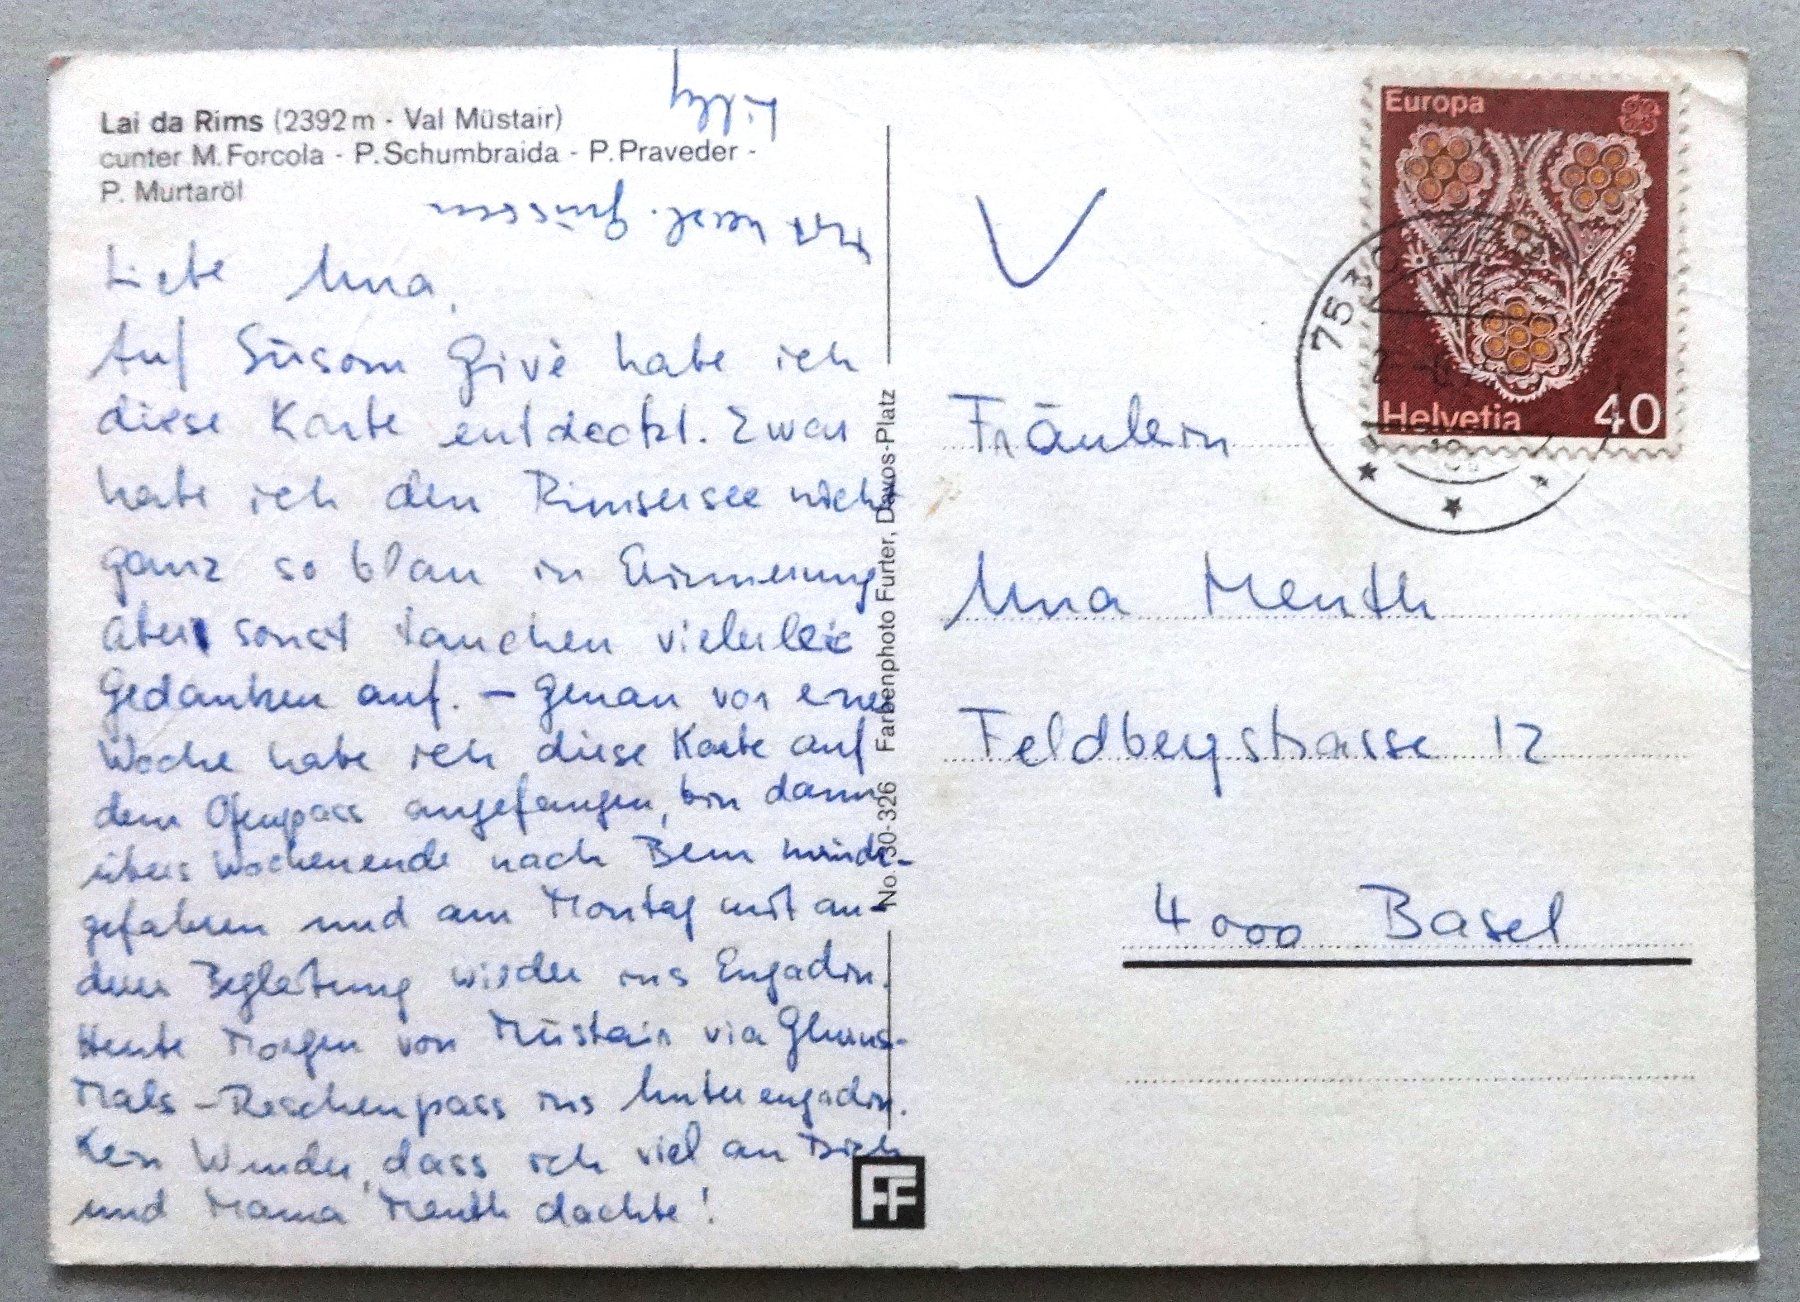 Lai da Rims (2392 m - Val Müstair)
cunter M. Forcola - P. Schumbraida - P. Praveder -
P. Murtaröl
Liebe Una,
Auf Süsom Givè habe ich
diese Karte entdeckt. Zwar
habe ich den Rimsersee nicht
ganz so blau in Erinnerung
aber sonst tauchen vielerlei
Gedanken auf. – Genau vor einer
Woche habe ich diese Karte auf
dem Ofenpass angefangen, bin dann
übers Wochenende nach Bern
gefahren und am Montag mit an-
derer Begleitung wieder ins Engadin.
Heute Morgen von Müstair via Glurns-
Mals - Reschenpass ins Unterengadin.
Kein Wunder, dass ich viel an Dich
und Mama Menth dachte!
Mit herzl. Grüssen
No. 30-326 Farbenphoto Furter, Davos-Platz
FF
Europa
Helvetia 40
7530 ZERNEZ
Fräulein
Una Menth
Feldbergstrasse 12
4000 Basel